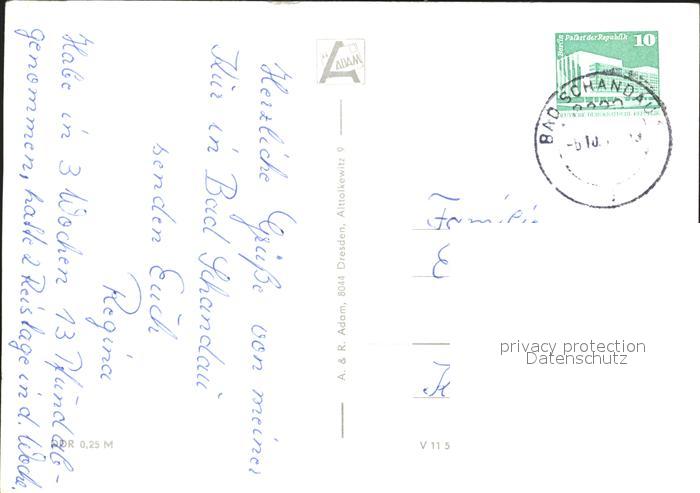 Herzliche Grüße von meiner
Kur in Bad Schandau
senden Euch
Regina
Habe in 3 Wochen 13 Pfund ab-
genommen, hatte 2 Reistage in d. Woche.
ADAM
A. & R. Adam, 8044 Dresden, Alttolkewitz 9
DDR 0,25 M
V 11 5
Berlin Palast der Republik 10
DEUTSCHE DEMOKRATISCHE REPUBLIK
BAD SCHANDAU
-6.10.
Familie
privacy protection
Datenschutz